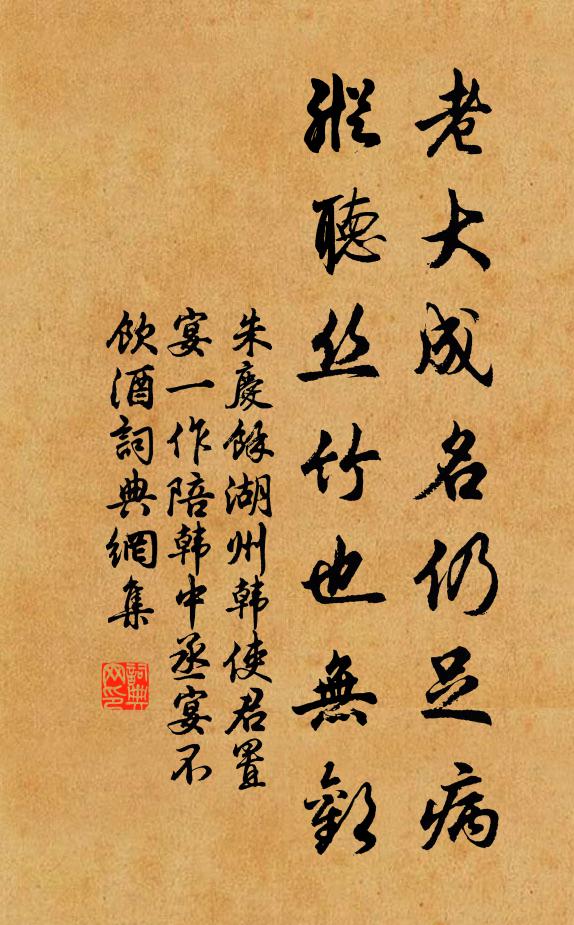 老大成名仍足病
縱聽絲竹也無歡
朱慶餘湖州韓使君置
宴一作陪韓中丞宴不
飲酒詞典網集
詞典
网印